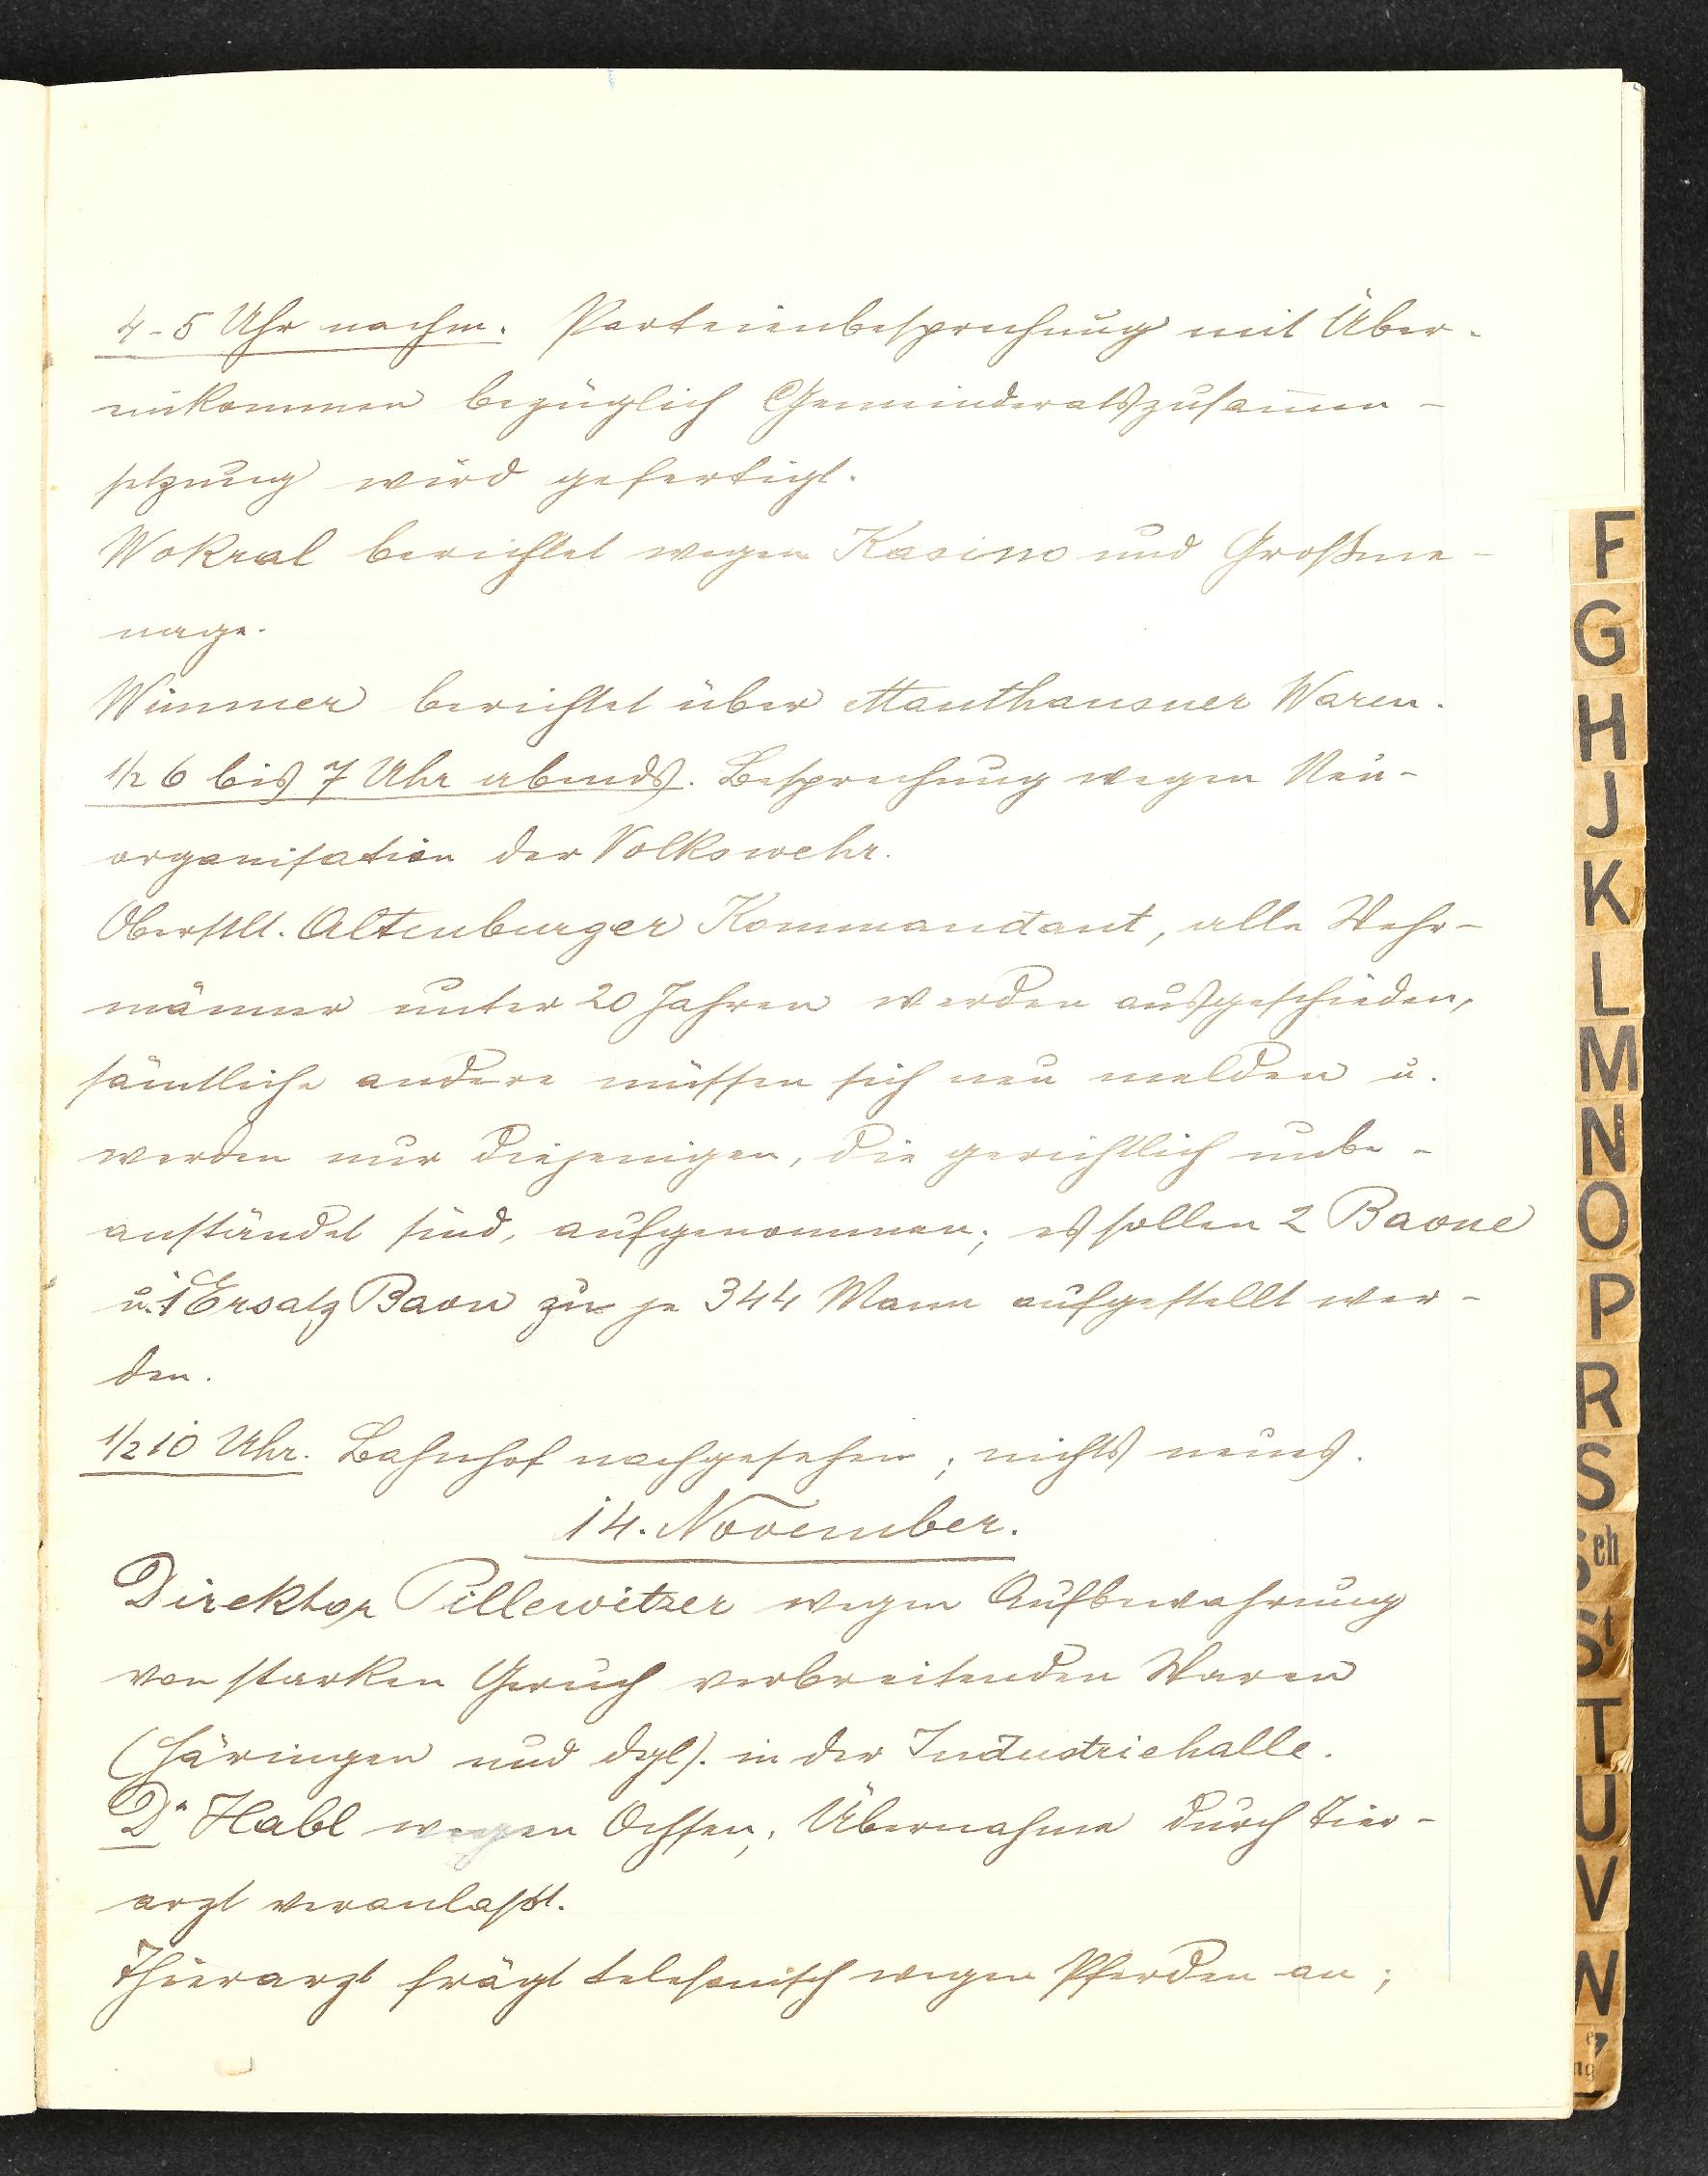 4-5 Uhr nachm. Parteienbesprechung mit Über-
einkommen bezüglich Gemeinderatszusam̅en-
setzung wird gefertigt.
Wokral berichtet wegen Kasino und Großme-
nage.
Wimmer berichtet über Mauthausner Waren.
1/2 6 bis 7 Uhr abends. Besprechung wegen Neu-
organisation der Volkswehr.
Oberstlt. Altenburger Kommandant, alle Wehr-
männer unter 20 Jahren werden ausgeschieden,
sämtliche andere müssen sich neu melden u.
werden nur diejenigen, die gerichtlich unbe-
anständet sind, aufgenommen; es sollen 2 Baone
u. 1 Ersatz Baon zu je 344 Mann aufgestellt wer-
den.
1/2 10 Uhr. Bahnhof nachgesehen; nichts neues.
14. November.
Direktor Pillewitzer wegen Aufbewahrung
von starken Geruch verbreitenden Waren
(Häringen und dgl). in der Industriehalle.
Dr Habl wegen Ochsen; Übernahme durch Tier-
arzt veranlaßt.
Thierarzt frägt telefonisch wegen Pferden an;
F
G
H
J
K
L
M
N
O
P
R
S
Sch
St
T
U
V
W